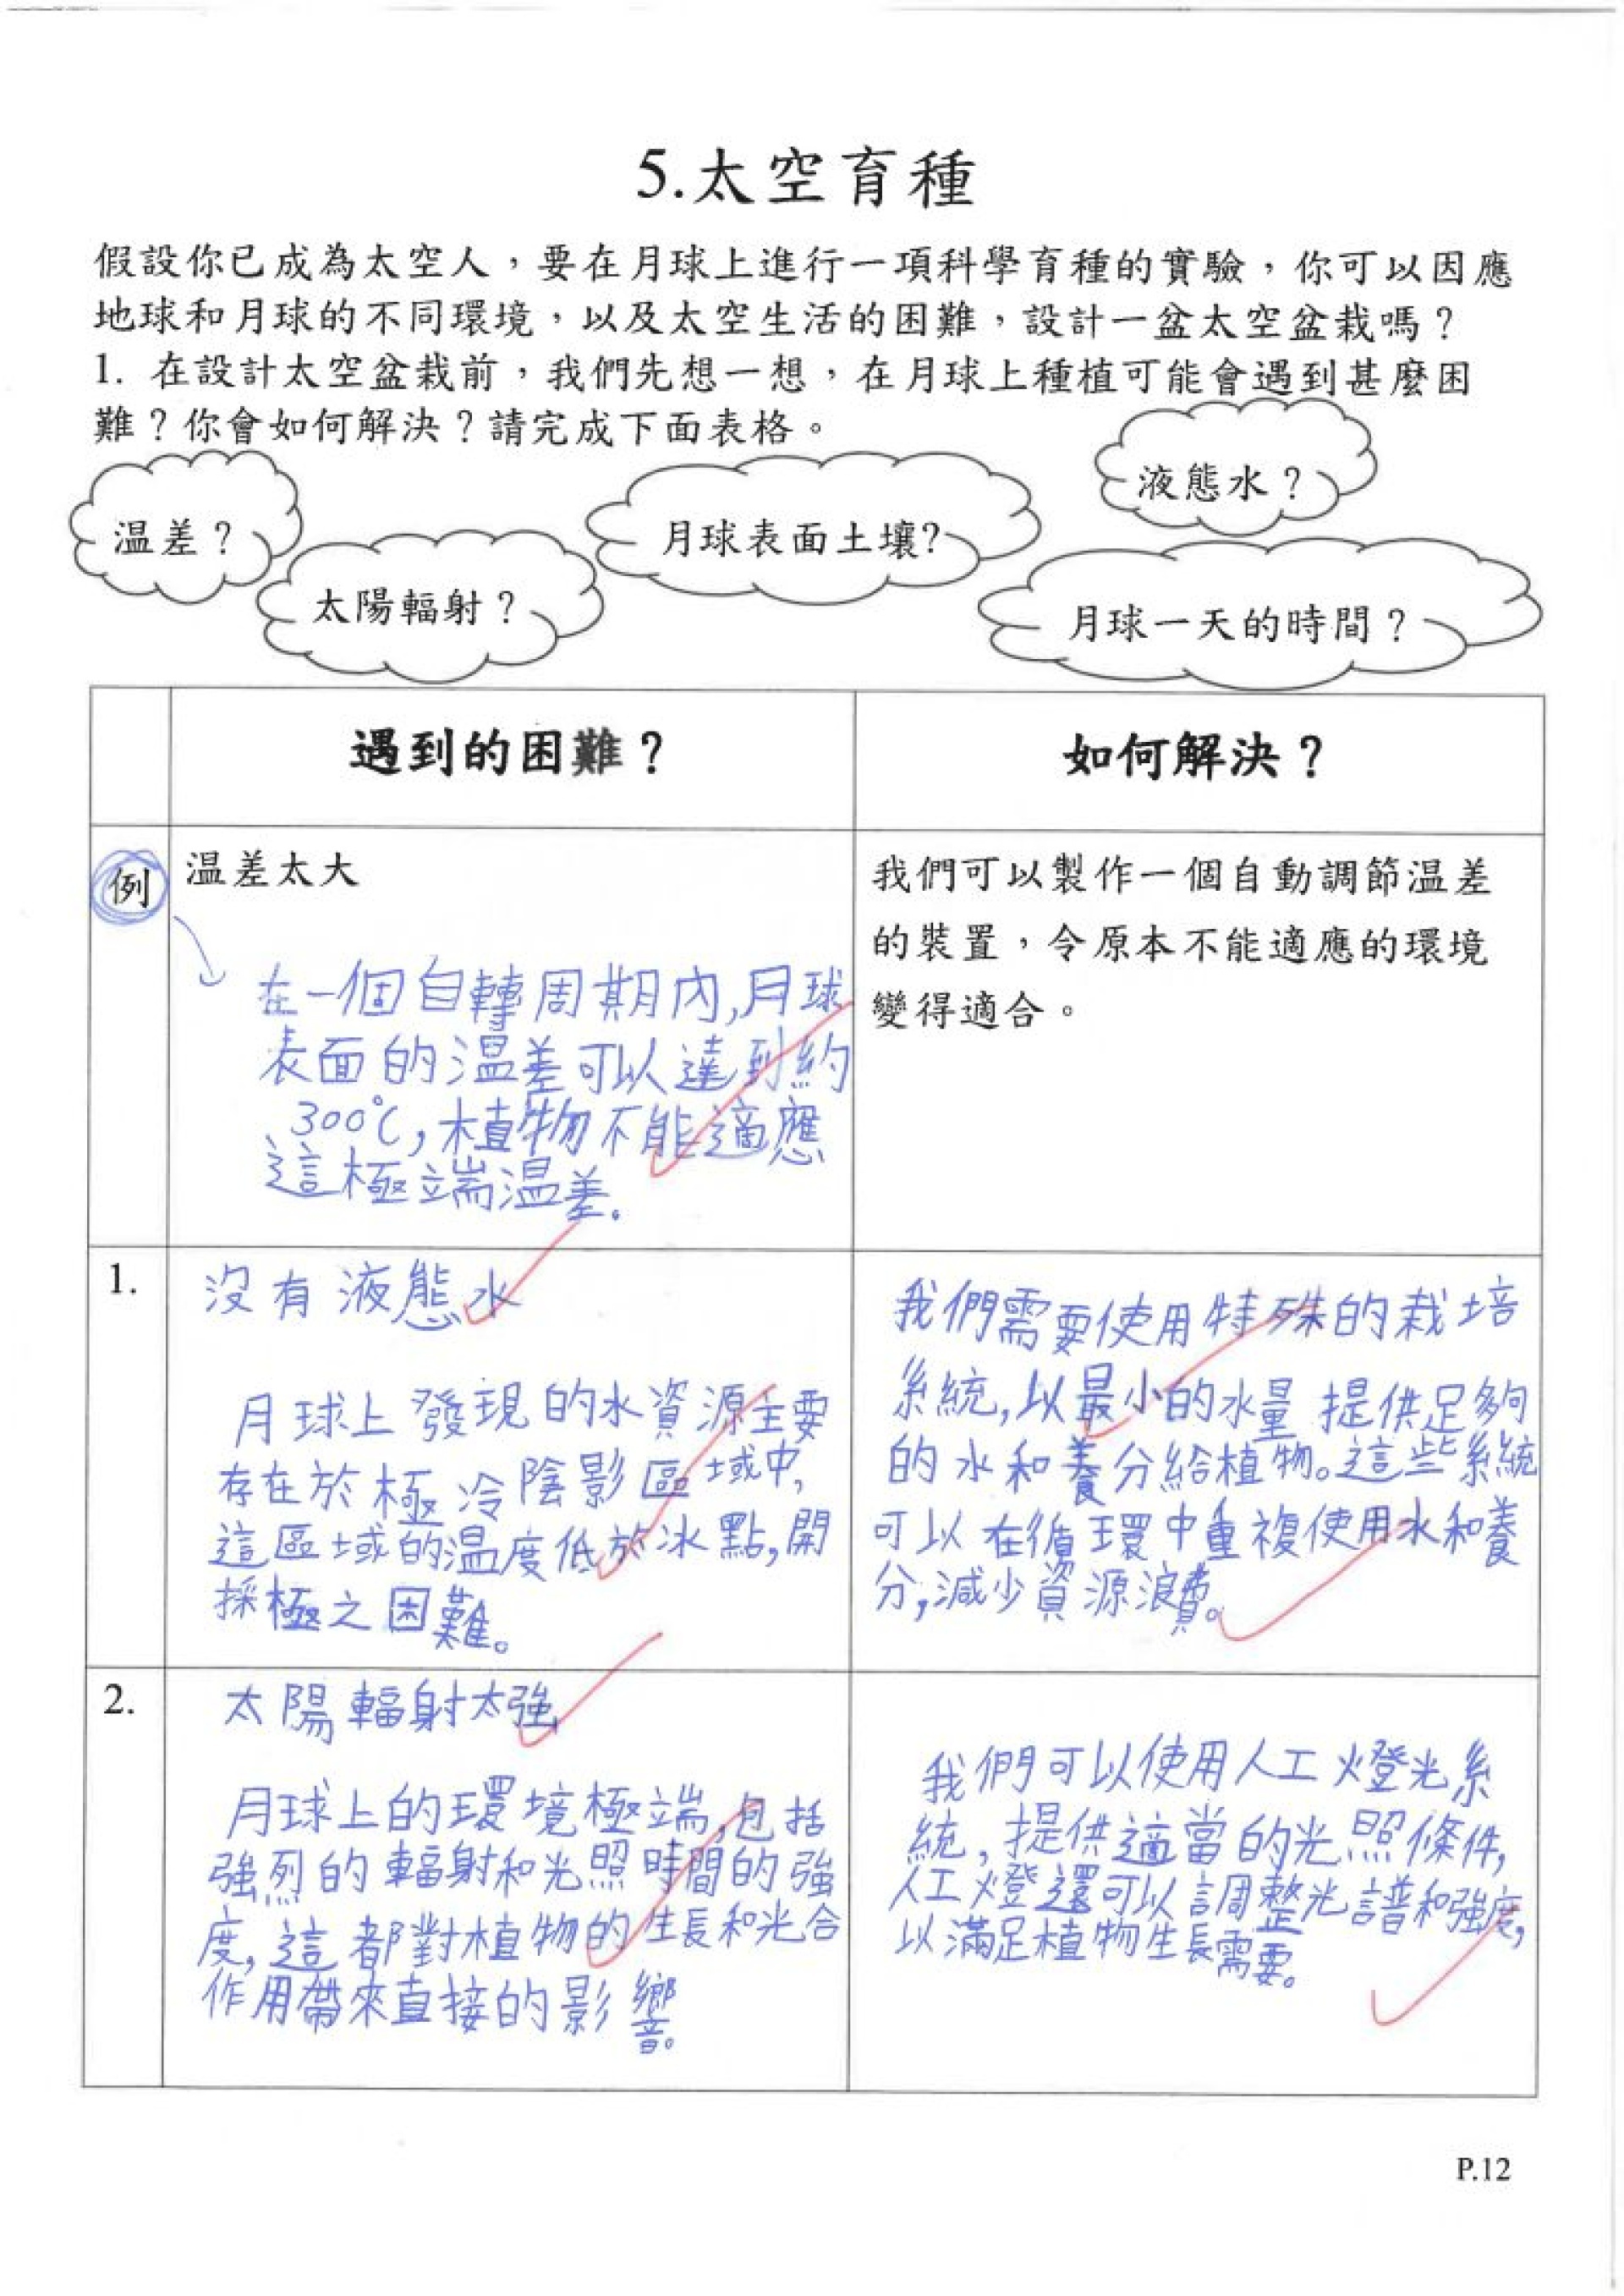 5.太空育種
假設你已成為太空人，要在月球上進行一項科學育種的實驗，你可以因應
地球和月球的不同環境，以及太空生活的困難，設計一盆太空盆栽嗎？
1. 在設計太空盆栽前，我們先想一想，在月球上種植可能會遇到甚麼困
難？你會如何解決？請完成下面表格。
液態水？
温差？
月球表面土壤?
太陽輻射？
月球一天的時間？
遇到的困難？
如何解決？
例
温差太大
在一個自轉周期內,月球
表面的温差可以達到約
300℃,植物不能適應
這極端温差。
我們可以製作一個自動調節温差
的裝置，令原本不能適應的環境
變得適合。
1.
沒有液態水
月球上發現的水資源主要
存在於極冷陰影區域中,
這區域的温度低於冰點,開
採極之困難。
我們需要使用特殊的栽培
系統,以最小的水量提供足夠
的水和養分給植物。這些系統
可以在循環中重複使用水和養
分,減少資源浪費。
2.
太陽輻射太強
月球上的環境極端,包括
強烈的輻射和光照時間的強
度,這都對植物的生長和光合
作用帶來直接的影響。
我們可以使用人工燈光系
統,提供適當的光照條件,
人工燈還可以調整光譜和強度,
以滿足植物生長需要。
P.12